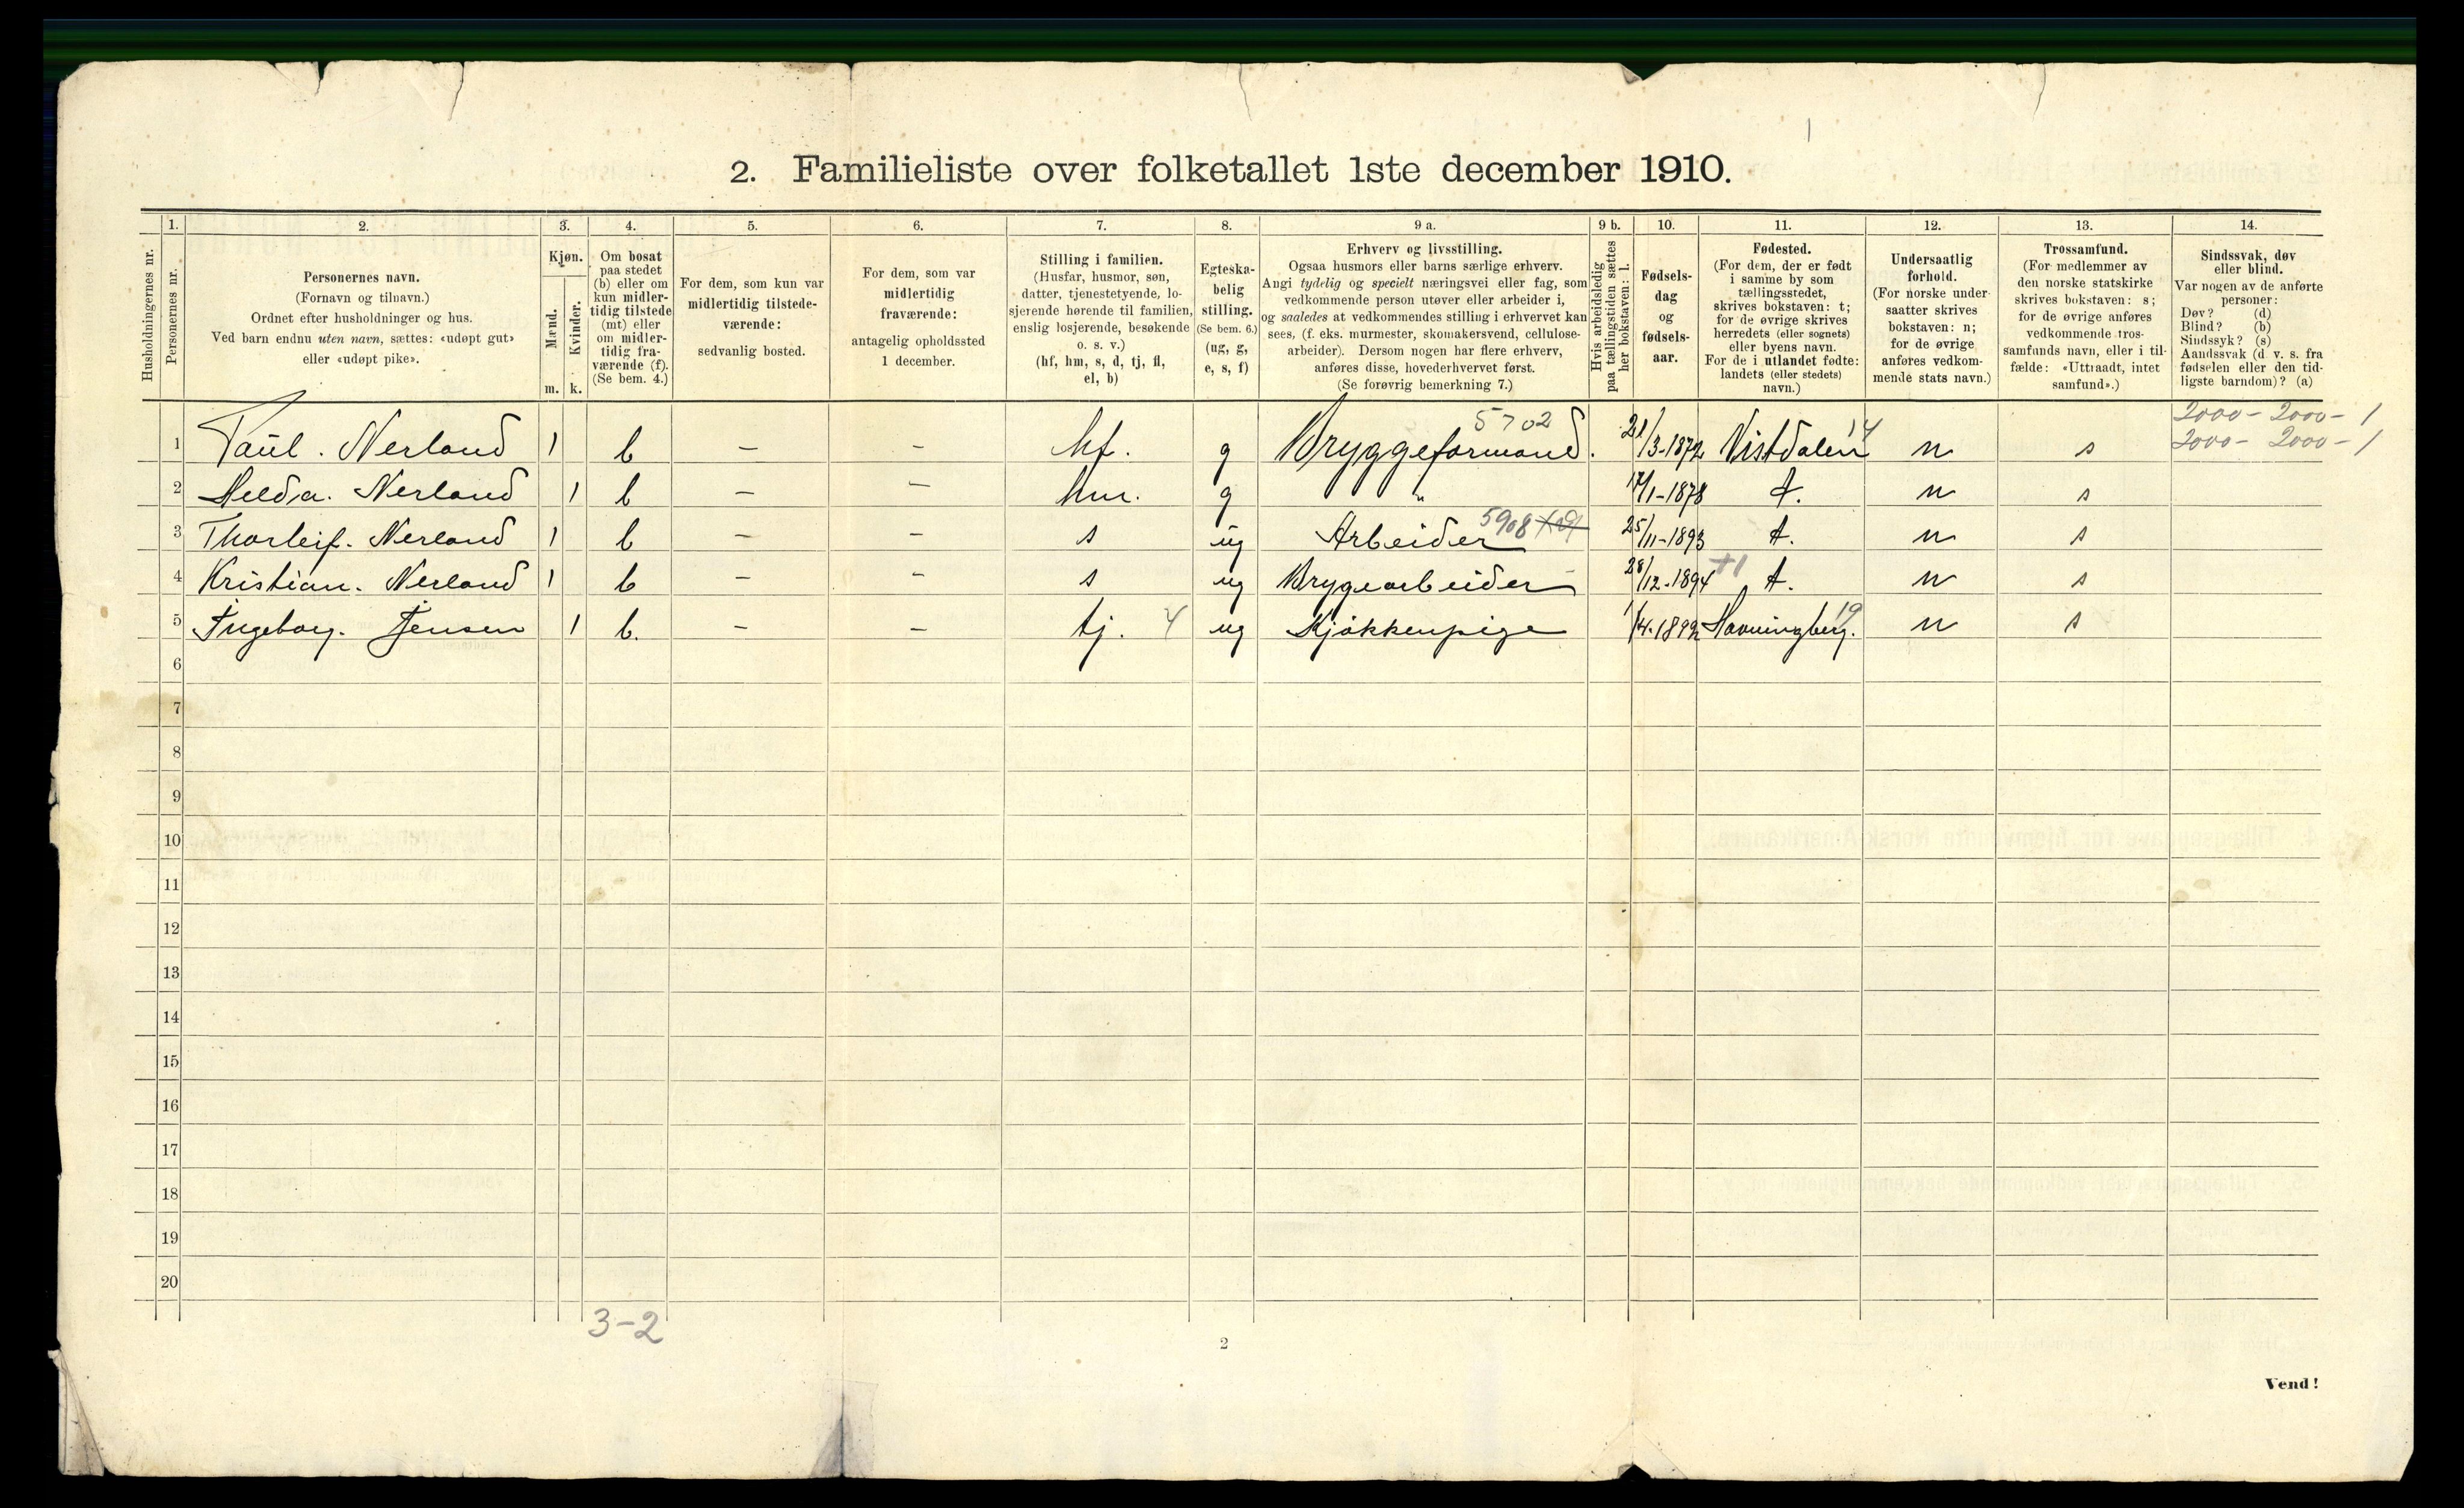 2. Familieliste over folketallet 1ste december 1910.
1. 2. 3. 4. 5. 6. 7. 8. 9 a. 9 b. 10. 11. 12. 13. 14.
Husholdningernes nr.
Personernes nr.
Personernes navn.
(Fornavn og tilnavn.)
Ordnet efter husholdninger og hus.
Ved barn endnu uten navn, sættes: «udøpt gut»
eller «udøpt pike».
Kjøn.
Mænd.
Kvinder.
m. k.
Om bosat
paa stedet
(b) eller om
kun midler-
tidig tilstede
(mt) eller
om midler-
tidig fra-
værende (f).
(Se bem. 4.)
For dem, som kun var
midlertidig tilstede-
værende:
sedvanlig bosted.
For dem, som var
midlertidig
fraværende:
antagelig opholdssted
1 december.
Stilling i familien.
(Husfar, husmor, søn,
datter, tjenestetyende, lo-
sjerende hørende til familien,
enslig losjerende, besøkende
o. s. v.)
(hf, hm, s, d, tj, fl,
el, b)
Egteska-
belig
stilling.
(Se bem. 6.)
(ug, g,
e, s, f)
Erhverv og livsstilling.
Ogsaa husmors eller barns særlige erhverv.
Angi tydelig og specielt næringsvei eller fag, som
vedkommende person utøver eller arbeider i,
og saaledes at vedkommendes stilling i erhvervet kan
sees, (f. eks. murmester, skomakersvend, cellulose-
arbeider). Dersom nogen har flere erhverv,
anføres disse, hovederhvervet først.
(Se forøvrig bemerkning 7.)
Hvis arbeidsledig
paa tællingstiden sættes
her bokstaven: l.
Fødsels-
dag
og
fødsels-
aar.
Fødested.
(For dem, der er født
i samme by som
tællingsstedet,
skrives bokstaven: t;
for de øvrige skrives
herredets (eller sognets)
eller byens navn.
For de i utlandet fødte:
landets (eller stedets)
navn.)
Undersaatlig
forhold.
(For norske under-
saatter skrives
bokstaven: n;
for de øvrige
anføres vedkom-
mende stats navn.)
Trossamfund.
(For medlemmer av
den norske statskirke
skrives bokstaven: s;
for de øvrige anføres
vedkommende tros-
samfunds navn, eller i til-
fælde: «Uttraadt, intet
samfund».)
Sindssvak, døv
eller blind.
Var nogen av de anførte
personer:
Døv? (d)
Blind? (b)
Sindssyk? (s)
Aandssvak (d. v. s. fra
fødselen eller den tid-
ligste barndom)? (a)
5702 14 2000 - 2000 - 1
1 Paul. Nerland 1 b - - hf. g Bryggeformand. 21/3-1872 Vistdalen n s 2000 - 2000 - 1
2 Helda. Nerland 1 b - - hm. g " 17/1-1878 t. n s
3 Thorleif. Nerland 1 b - - s ug Arbeider 5908 25/11-1893 t. n s
4 Kristian. Nerland 1 b - - s ug Brygearbeider 28/12-1894 t. n s
5 Ingeborg. Jensen 1 b. - - tj. 4 ug Kjøkkenpige 1/4-1892 Havningberg. 19 n s
6
7
8
9
10
11
12
13
14
15
16
17
18
19
20
3-2
2
Vend!